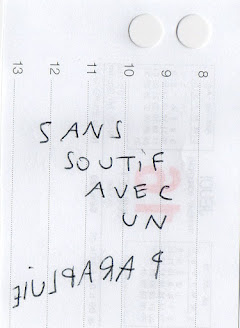 13
12
11
10
9
8
SANS
SOUTIF
AVEC
UN
PARAPLUIE